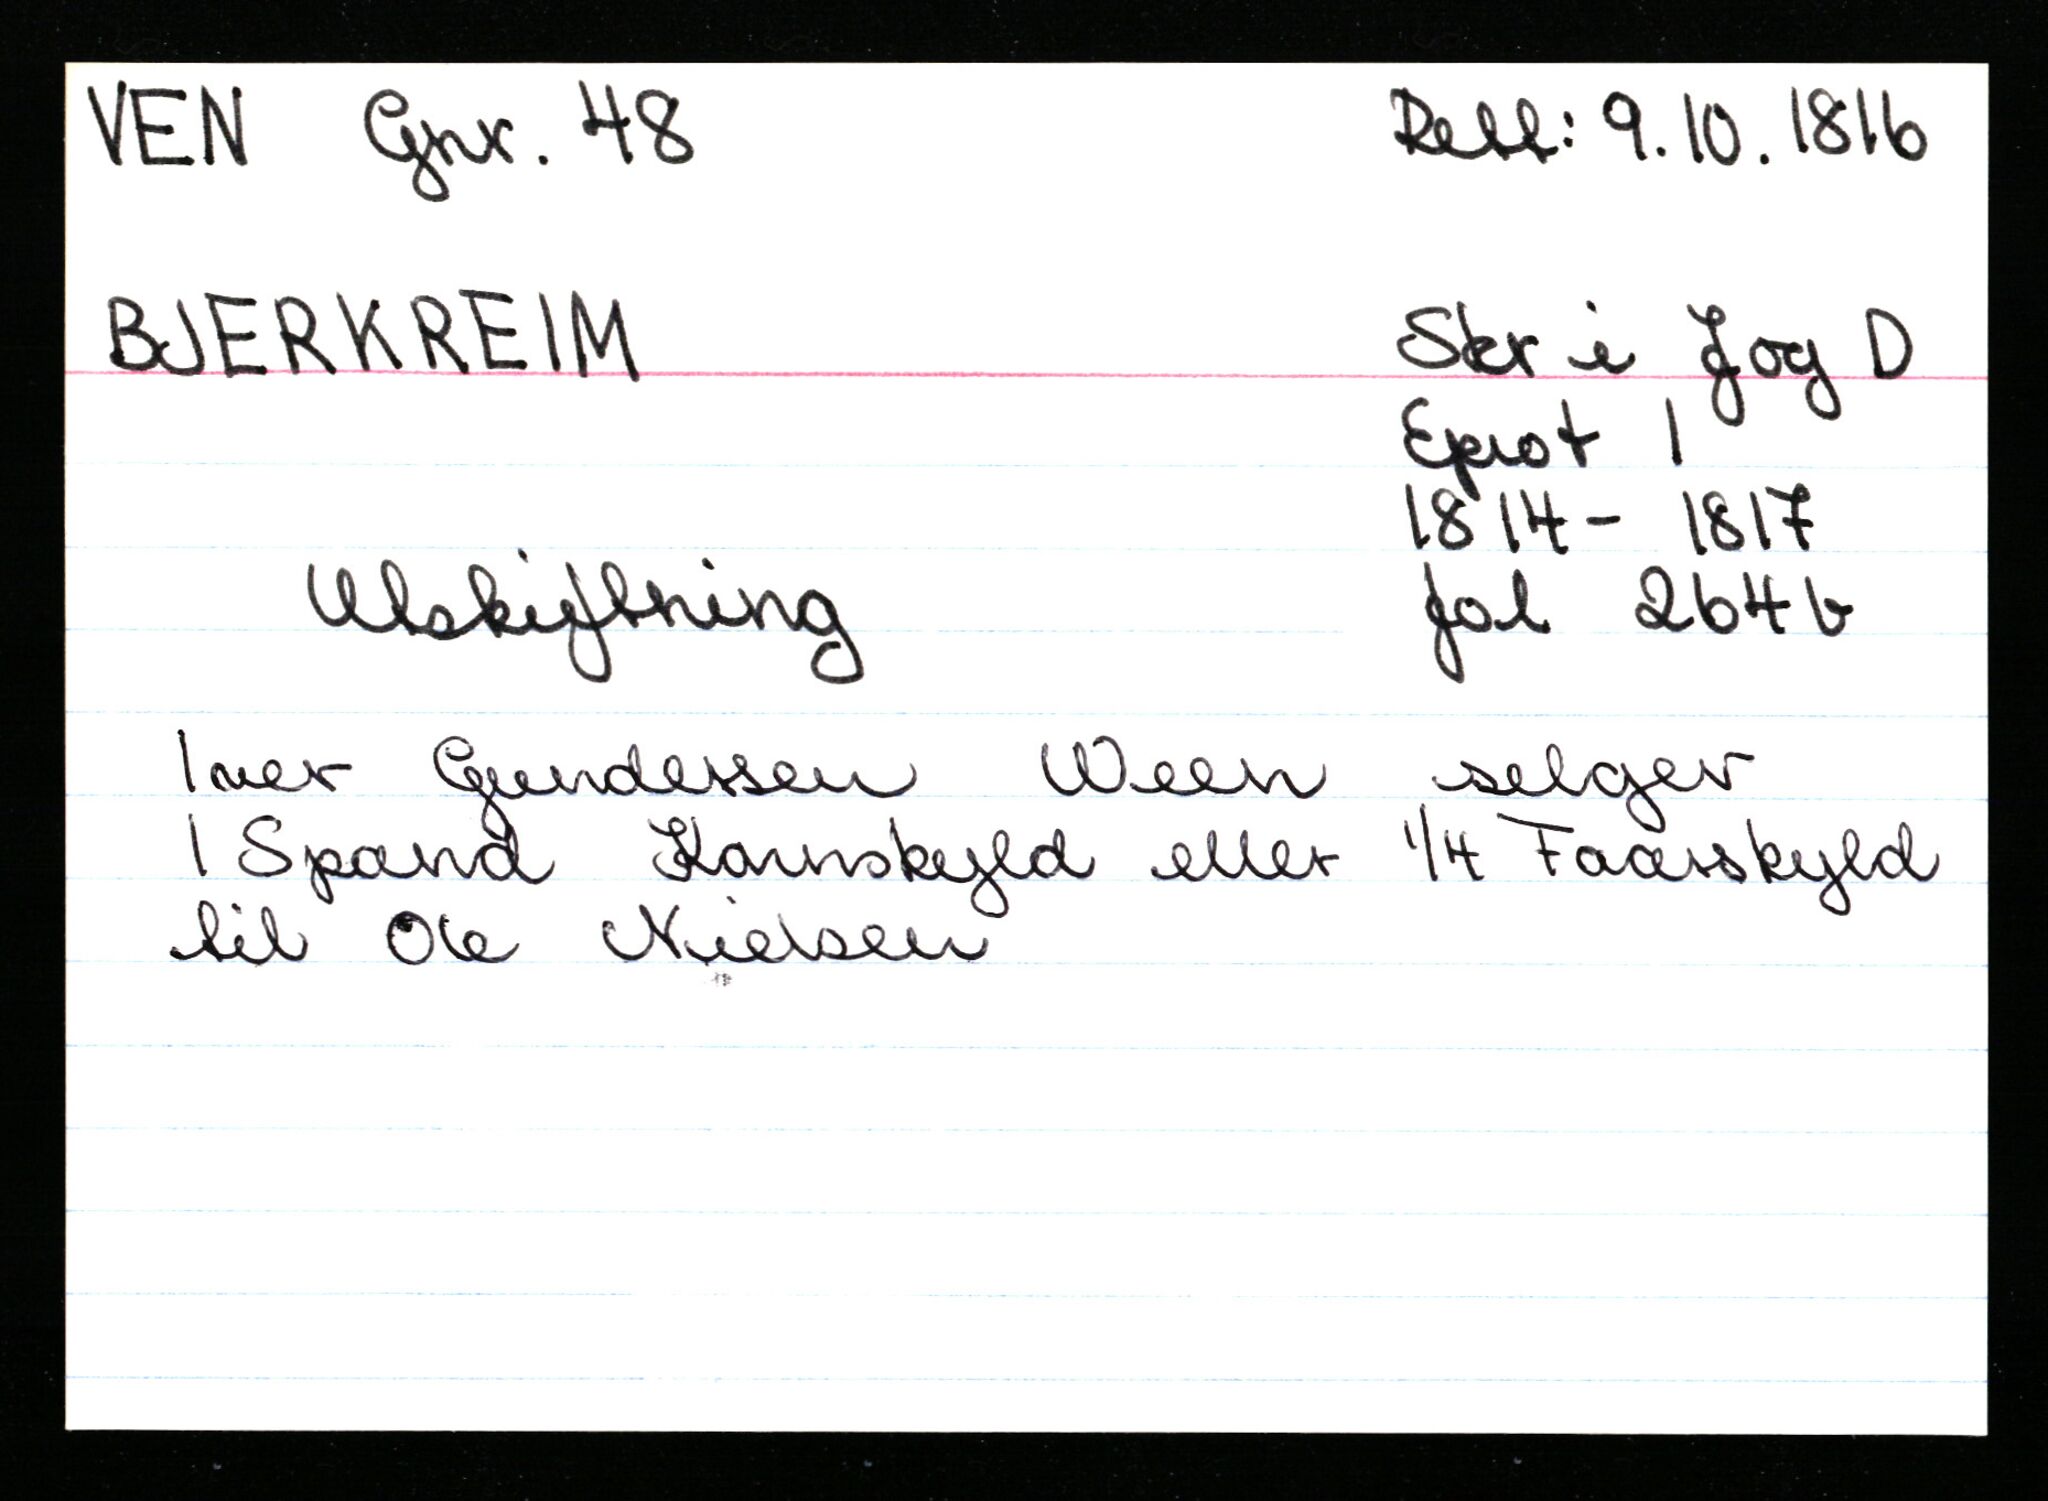 VEN Gnr. 48 Rett: 9.10.1816
BJERKREIM Skr i J og D
Eprot 1
1814 - 1817
fol 264 b
Utskiftning
Iver Gundersen Ween selger
1 Spand Kornskyld eller 1/4 Faarskyld
til Ole Nielsen